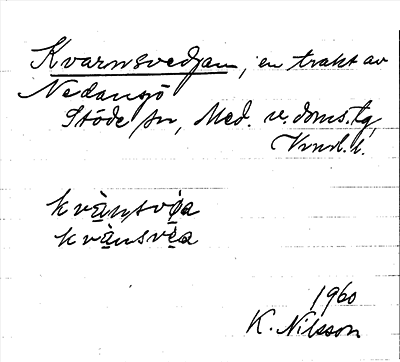 Kvarnsvedjan, en trakt av
Nedansjö
Stöde sn, Med. v. doms. tg,
Vnrl. l.
kvàṇsvèa
kvànsvèa
1960
K. Nilsson